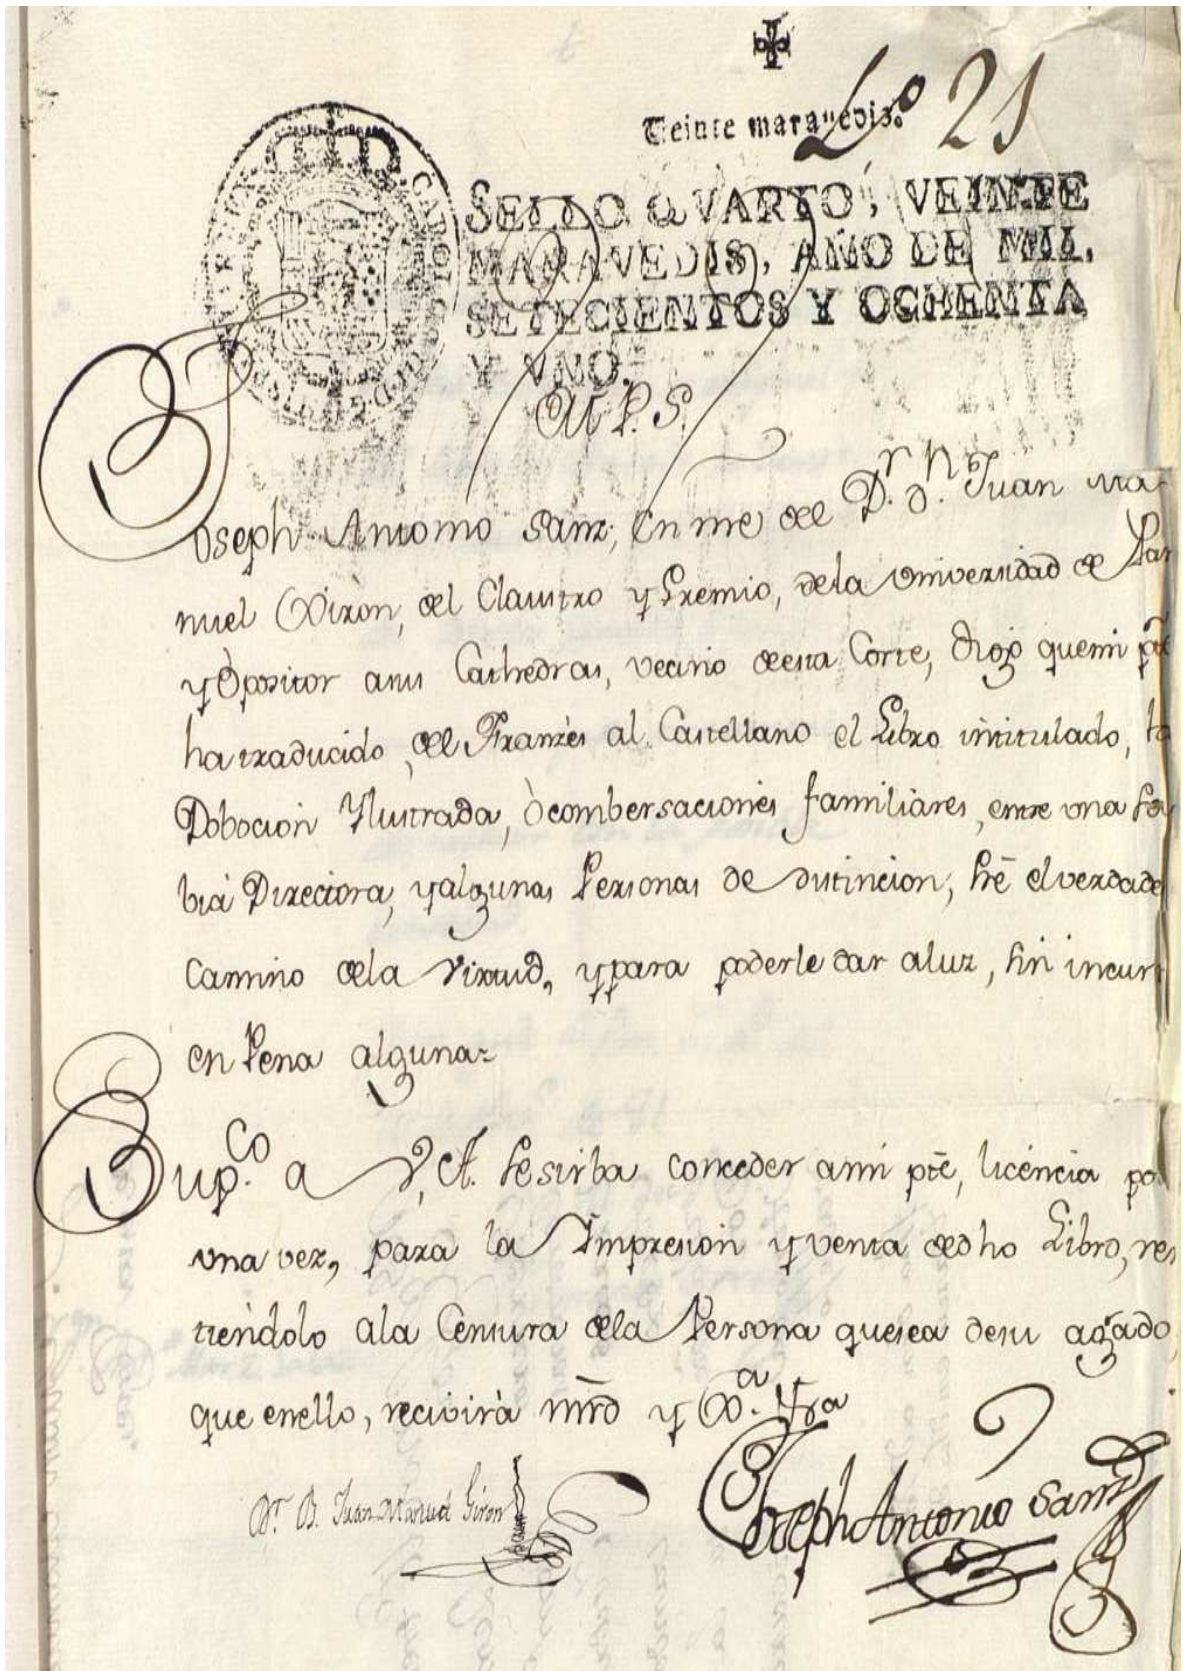 Veinte maravedis.
Lº 21
SELLO QVARTO, VEINTE
MARAVEDIS, AÑO DE MIL
SETECIENTOS Y OCHENTA
Y VNO.
M. P. S.
Joseph Antonio Sanz, en nre del D.r d.n Juan Ma-
nuel Giron, del Claustro y Gremio, dela Universidad de
y Opositor asus Cathedras, vecino deesta Corte, Digo quemi pte
ha traducido, del Franzès al Castellano el Libro intitulado, la
Dobocion Ylustrada, ò combersaciones familiares, entre una Sa
bia Directora, y algunas Personas de distincion, sre el verdade
Camino dela Virtud, y para poderle dar aluz, sin incurr
en Pena alguna=
Sup.co a V. A. se sirba conceder ami pte, licencia po
una vez, para la Impresion y venta dedho Libro, re
tiendolo ala Censura dela Persona quesea desu agrado
que enello, recivirà mrd y G.a
D.r D. Juan Manuel Giron
Joseph Antonio Sanz